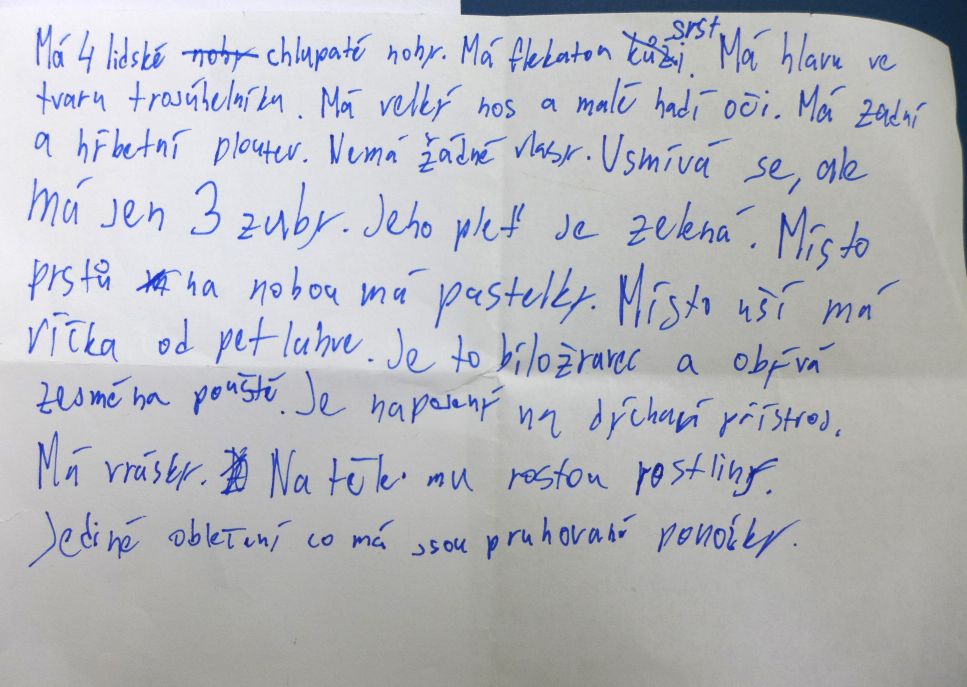 Má 4 lidské nohy chlupaté nohy. Má flekatou kůži srst. Má hlavu ve
tvaru trojúhelníku. Má velký nos a malé hadí oči. Má zadní
a hřbetní ploutev. Nemá žádné vlasy. Usmívá se, ale
má jen 3 zuby. Jeho pleť je zelená. Místo
prstů na nohou má pastelky. Místo uší má
víčka od petlahve. Je to býložravec a obývá
zejména pouště. Je napojený na dýchací přístroj.
Má vrásky. Na těle mu rostou rostliny.
Jediné oblečení co má jsou pruhované ponožky.